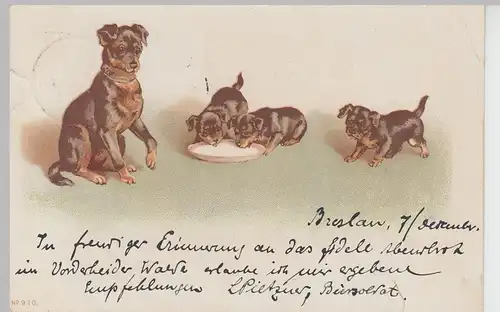 Breslau, 7/ Dezember.
In freudiger Erinnerung an das fidele Abendbrot
im Vorderheider Walde erlaube ich mir ergebene
Empfehlungen LPietzner,
No 970.